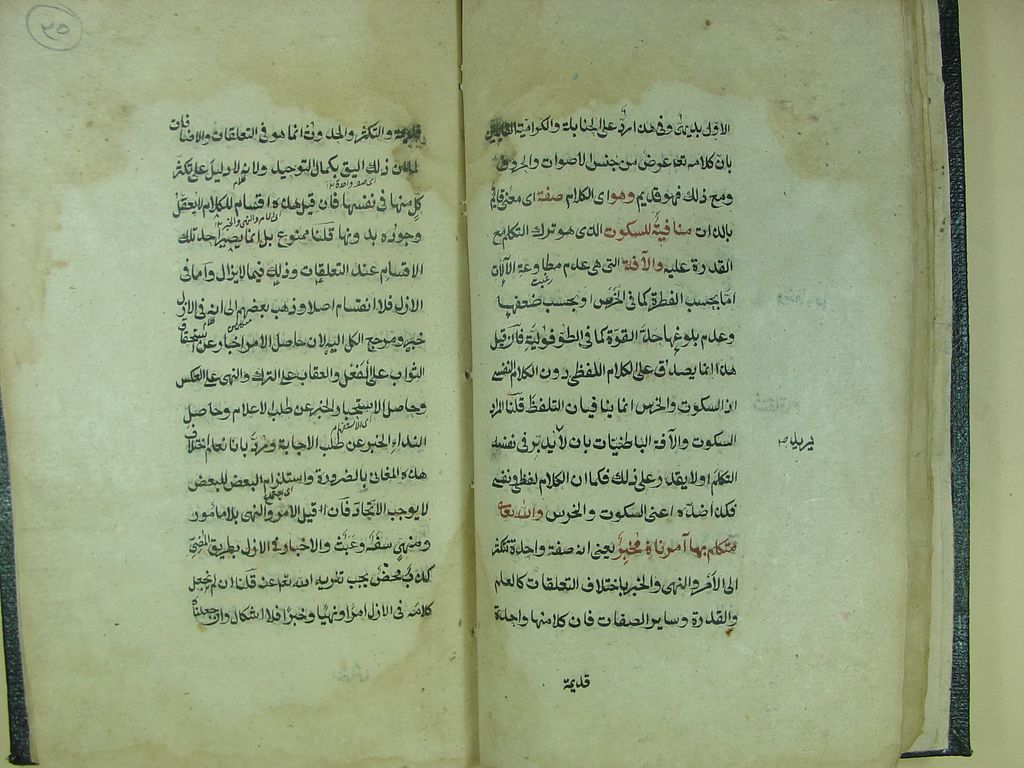 الاول بديهى وفى هذا رد على الحنابلة والكرامية القائلين
بان كلامه تعا عرض من جنس الاصوات والحروف
ومع ذلك فهو قديم وهو اى الكلام صفة اى معنى قائم
بالذات منافية للسكوت الذى هو ترك التكلم مع
القدرة عليه والآفة التى هى عدم مطاوعة الآلات
اما بحسب الفطرة كما فى الخرس او بحسب ضعفها
وعدم بلوغها حد القوة كما فى الطفولية فان قيل
هذا انما يصدق على الكلام اللفظى دون الكلام النفسى
اذ السكوت والخرس انما ينافيان التلفظ قلنا المراد
السكوت والآفة الباطنيتان بان لا يدبر فى نفسه
يريد ص
التكلم او لا يقدر على ذلك فكما ان الكلام لفظى ونفسى
فكذا ضده اعنى السكوت والخرس والله تعا
متكلم بها آمر ناه مخبر يعنى انه صفة واحدة تتكثر
الى الأمر والنهى والخبر باختلاف التعلقات كالعلم
والقدرة وساير الصفات فان كلا منها واحدة
قديمة
٢٥
قديمة والتكثر والحدوث انما هو فى التعلقات والاضافات
لما ان ذلك اليق بكمال التوحيد ولانه لا دليل على تكثر
اى صفة واحدة
كل منها فى نفسها فان قيل هذه اقسام للكلام لا يعقل
اى الامر والنهى والخبر
وجوده بدونها قلنا ممنوع بل انما يصير احد تلك
الاقسام عند التعلقات وذلك فيما لا يزال واما فى
الازل فلا انقسام اصلا وذهب بعضهم الى انه فى الازل
خبر ومرجع الكل اليه لان حاصل الامر اخبار عن استحقاق
الثواب على الفعل والعقاب على الترك والنهى على العكس
وحاصل الاستخبار الخبر عن طلب الاعلام وحاصل
اى الاستفهام
النداء الخبر عن طلب الاجابة ورد بانا نعلم اختلاف
هذه المعانى بالضرورة واستلزام البعض للبعض
لا يوجب الاتحاد فان قيل الامر والنهى بلا مأمور
ومنهى سفه وعبث والاخبار فى الازل بطريق المضى
كذب محض يجب تنزيه الله تعا عنه قلنا ان لم نجعل
كلامه فى الازل امرا ونهيا وخبرا فلا اشكال وان جعلنا